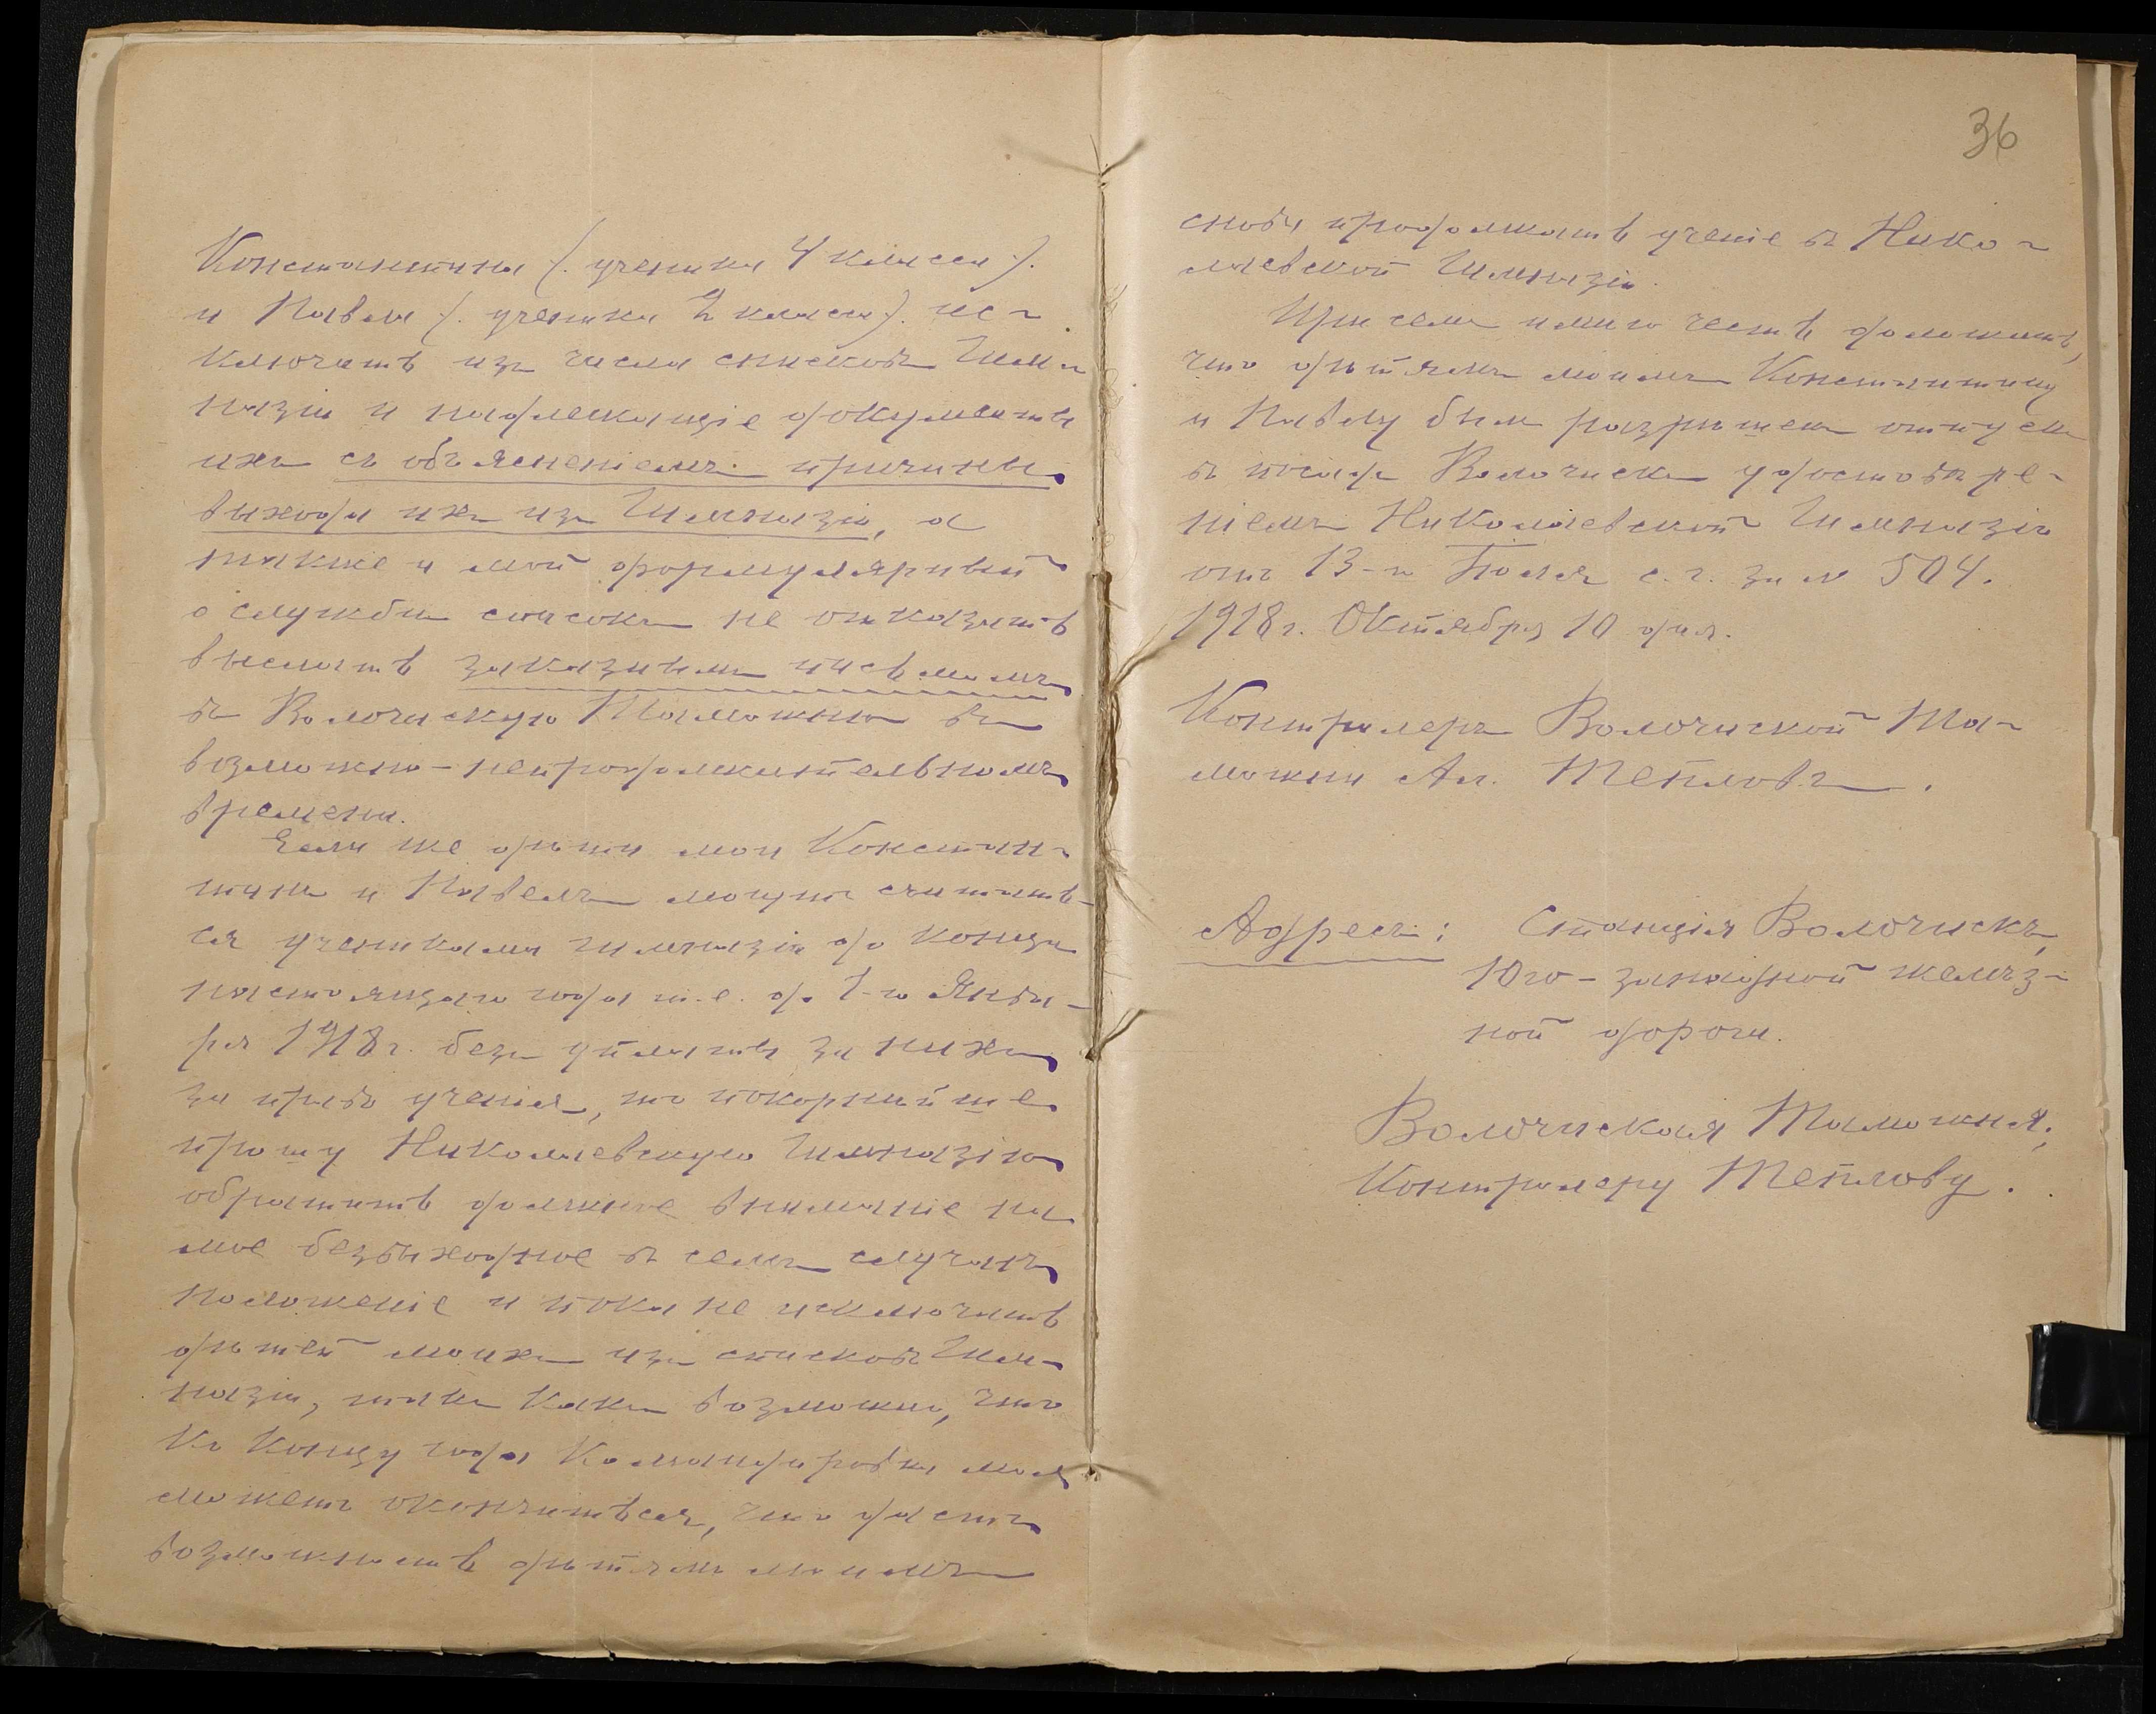 Константина (. ученика 4 класса ).
и Павла (. ученика 2 класса ). ис-
ключить изъ числа списковъ Гим-
назіи и надлежащіе документы
ихъ съ объясненіемъ причины
выхода ихъ изъ Гимназіи, а
также и мой формулярный
о службѣ списокъ не отказать
выслать заказнымъ письмомъ
въ Волочискую Таможню въ
возможно-непродолжительномъ
времени.
Если же дѣти мои Констан-
тинъ и Павелъ могутъ считать-
ся учениками гимназіи до конца
настоящаго года т.е. до 1-го Янва-
ря 1918 г. безъ уплаты за нихъ
за право ученія, то покорнѣйше
прошу Николаевскую Гимназію
обратить должное вниманіе на
мое безвыходное въ семъ случаѣ
положеніе и пока не исключать
дѣтей моихъ изъ списковъ Гим-
назіи, такъ какъ возможно, что
къ концу года командировка моя
можетъ окончиться, что дастъ
возможность дѣтямъ моимъ
36
снова продолжать ученіе въ Нико-
лаевской Гимназіи.
При семъ имѣю честь доложить,
что дѣтямъ моимъ Константину
и Павлу былъ разрѣшенъ отпускъ
въ посадъ Волочискъ удостовѣре-
ніемъ Николаевской Гимназіи
отъ 13-го Іюля с. г. за № 504.
1918 г. Октября 10 дня.
Контролеръ Волочиской Та-
можни Ал. Тепловъ.
Адресъ: Станція Волочискъ,
Юго-западной желѣз-
ной дороги.
Волочиская Таможня,
Контролеру Теплову.